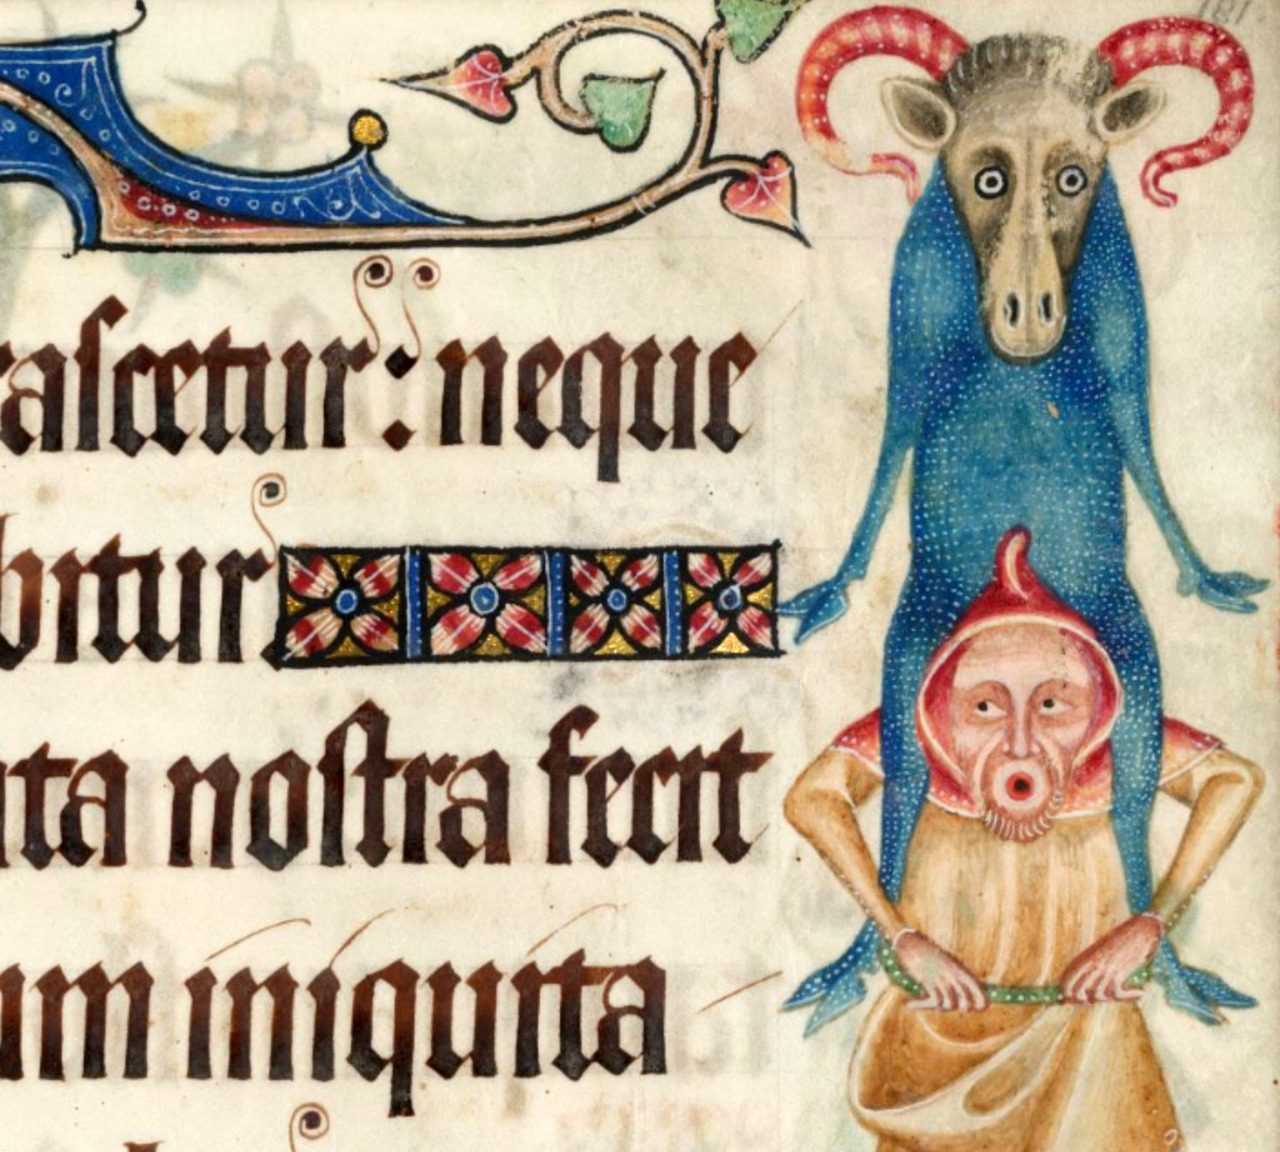 181.
rascetur: neque
bitur
ata nostra fecit
um iniquita